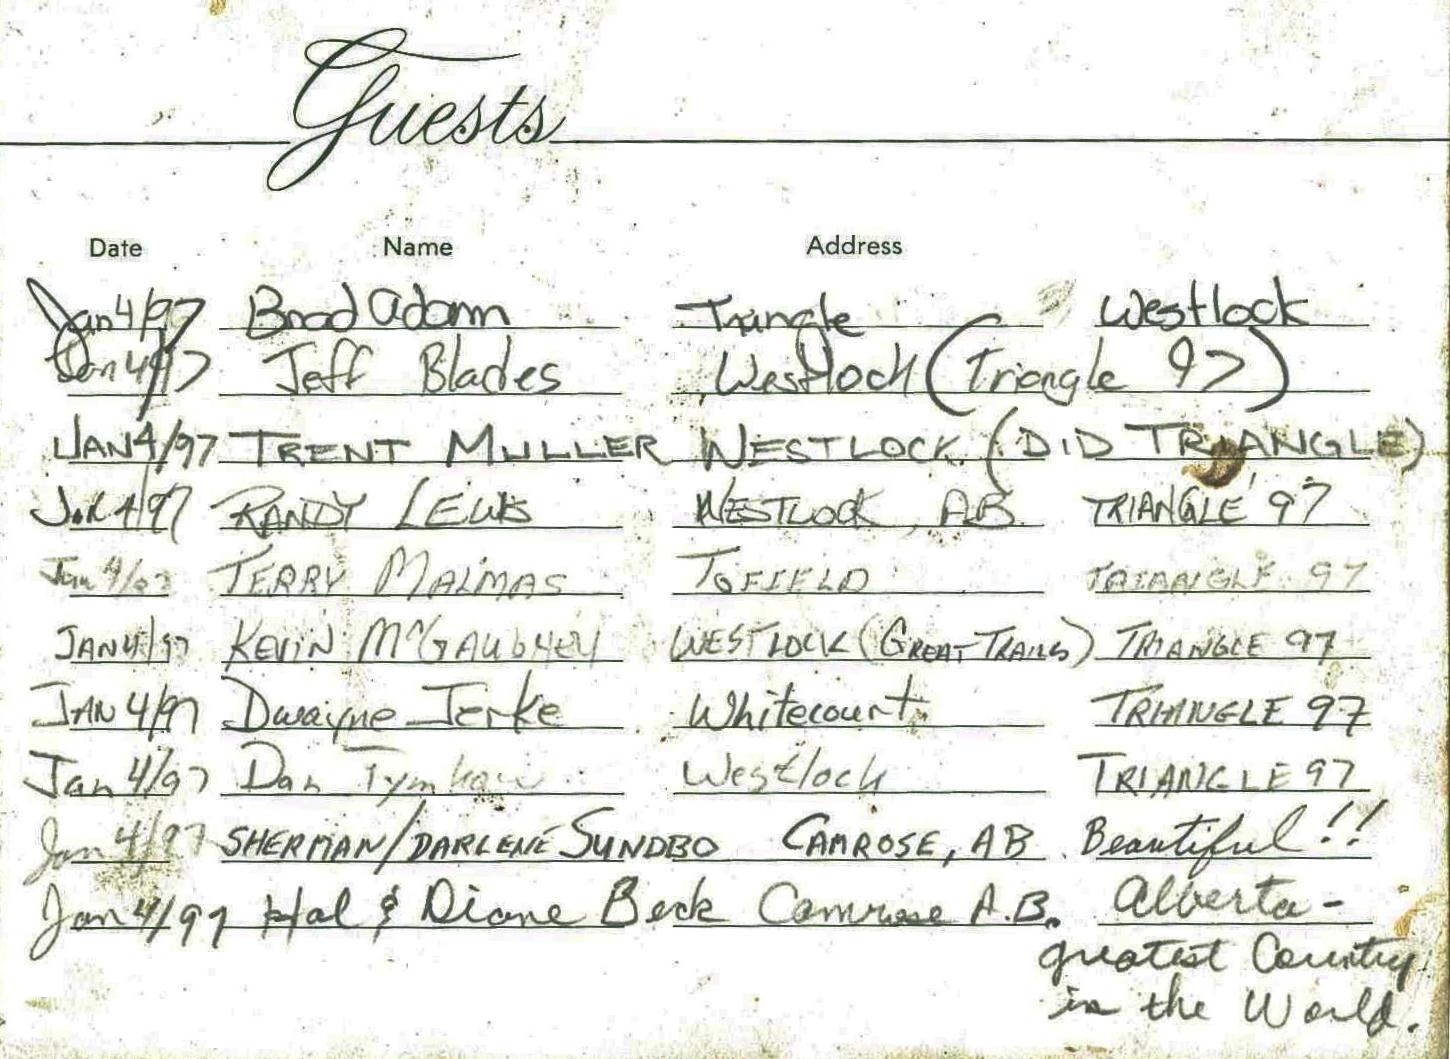 Guests
Date Name Address
Jan 4/97 Brad Adam Triangle Westlock
Jan 4/97 Jeff Blades Westlock (Triangle 97)
JAN 4/97 TRENT MULLER WESTLOCK (DID TRIANGLE)
Jan 4/97 RANDY LEWIS WESTLOCK, AB. TRIANGLE 97
Jan 4/97 TERRY MALMAS TOFIELD TRIANGLE 97
JAN 4/97 KEVIN McGAUGHEY WESTLOCK (GREAT TRAILS) TRIANGLE 97
JAN 4/97 Dwayne Jerke Whitecourt TRIANGLE 97
Jan 4/97 Dan Westlock TRIANGLE 97
Jan 4/97 SHERMAN/DARLENE SUNDBO CAMROSE, AB Beautiful!!
Jan 4/97 Hal & Diane Beck Camrose A.B. Alberta -
greatest Country
in the World.